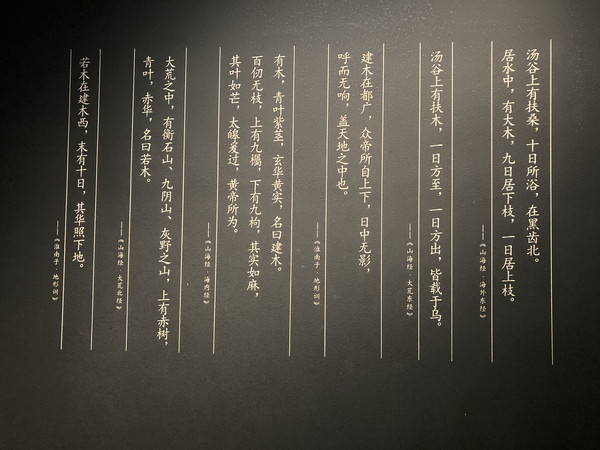 汤谷上有扶桑，十日所浴，在黑齿北。
居水中，有大木，九日居下枝，一日居上枝。
——《山海经·海外东经》
汤谷上有扶木，一日方至，一日方出，皆载于乌。
——《山海经·大荒东经》
建木在都广，众帝所自上下，日中无影，
呼而无响，盖天地之中也。
——《淮南子·地形训》
有木，青叶紫茎，玄华黄实，名曰建木。
百仞无枝，上有九欘，下有九枸，其实如麻，
其叶如芒，大皞爰过，黄帝所为。
——《山海经·海内经》
大荒之中，有衡石山、九阴山、灰野之山，上有赤树，
青叶，赤华，名曰若木。
——《山海经·大荒北经》
若木在建木西，末有十日，其华照下地。
——《淮南子·地形训》